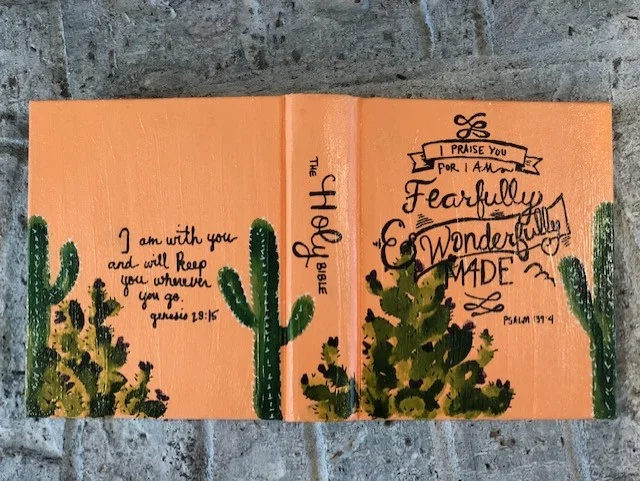 I am with you
and will keep
you wherever
you go.
genesis 28:15
THE Holy BIBLE
I PRAISE YOU
FOR I AM
Fearfully
& Wonderfully
MADE
PSALM 139:4